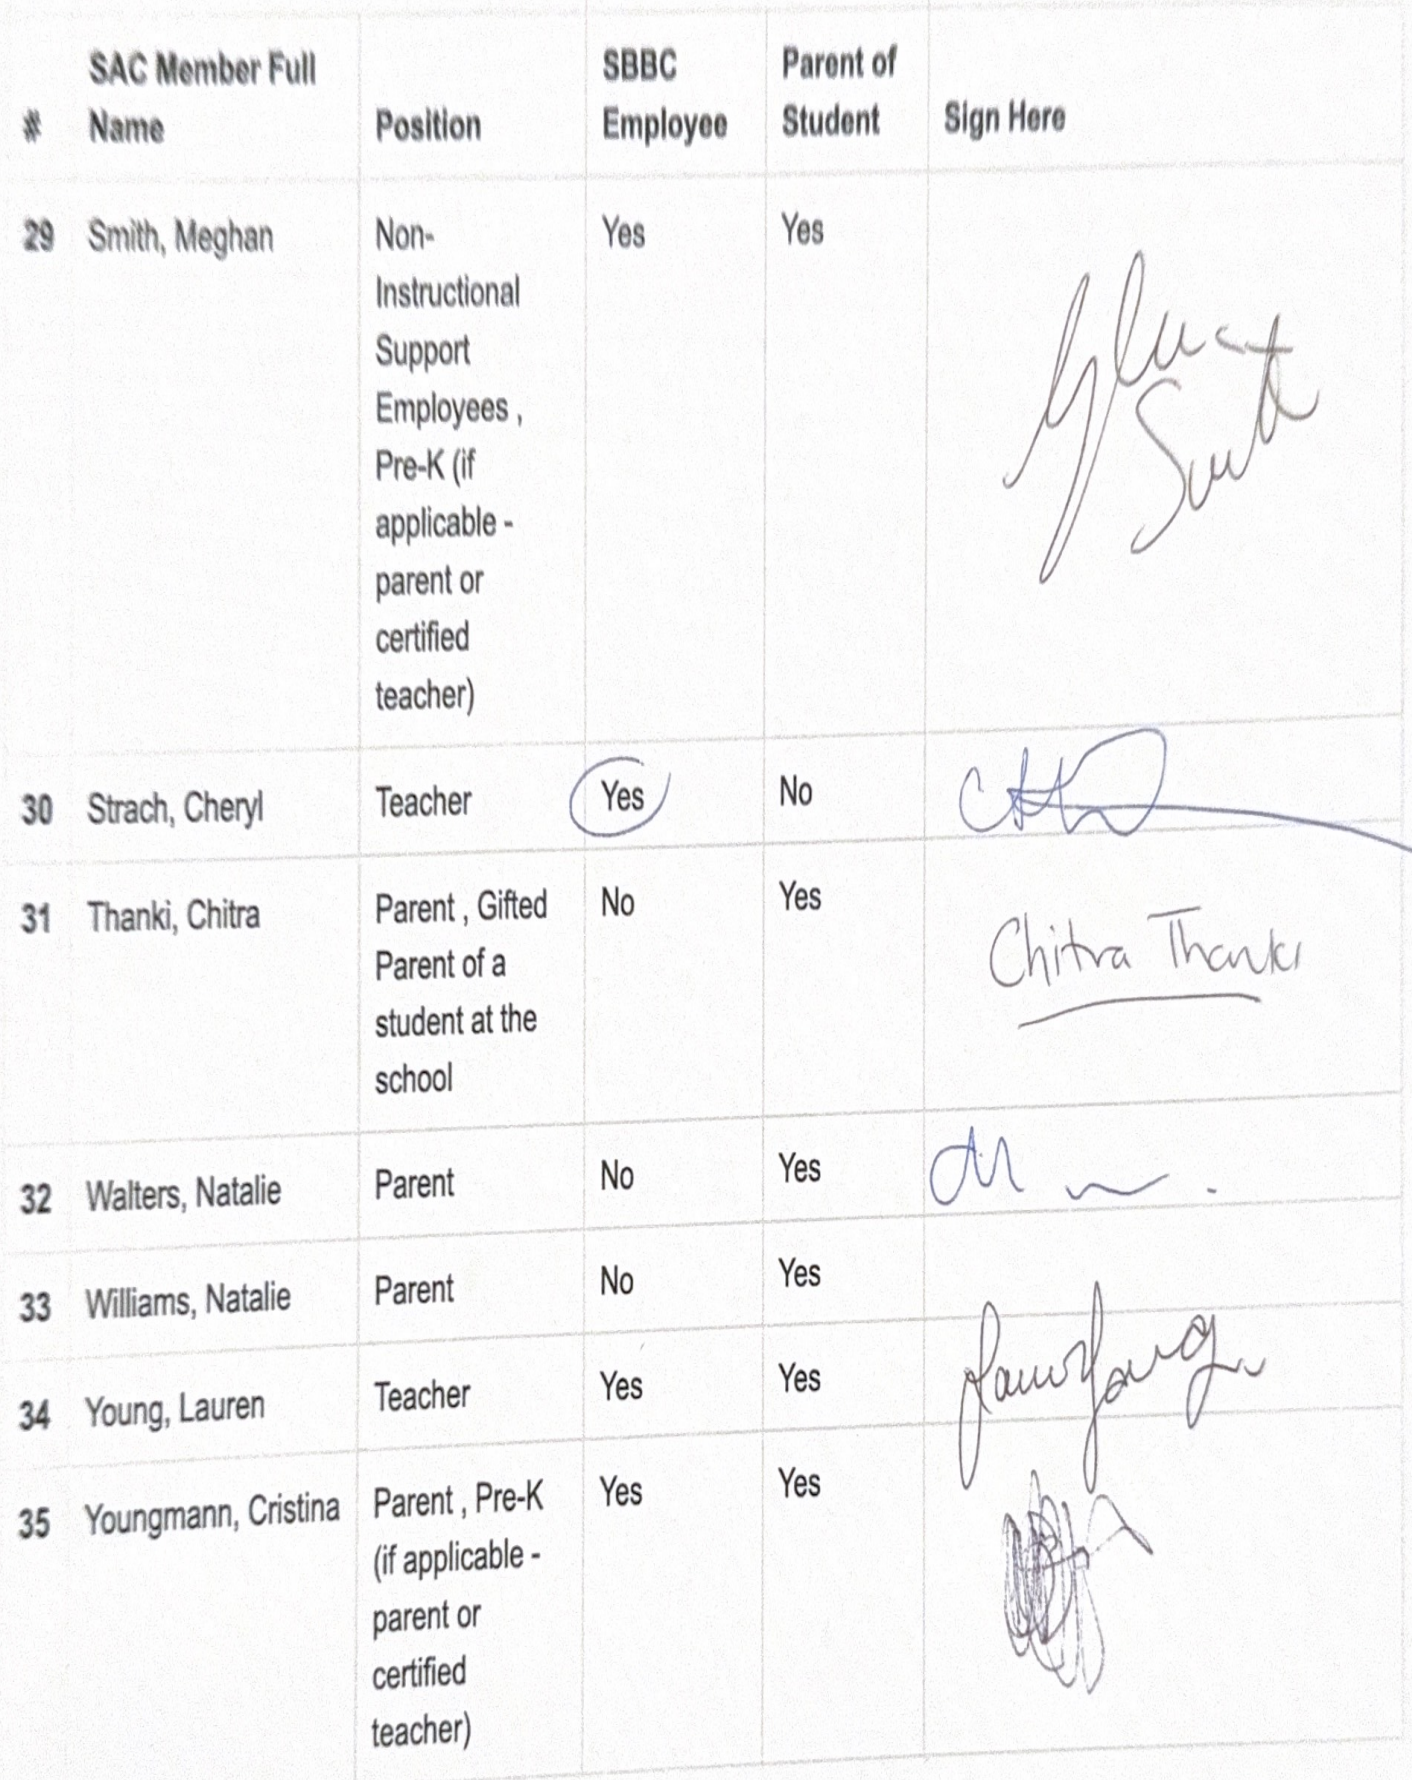 # SAC Member Full Name Position SBBC Employee Parent of Student Sign Here
29 Smith, Meghan Non- Yes Yes
Instructional
Support
Employees ,
Pre-K (if
applicable -
parent or
certified
teacher)
Smith
30 Strach, Cheryl Teacher Yes No
31 Thanki, Chitra Parent , Gifted No Yes
Parent of a
student at the
school
Chitra Thanki
32 Walters, Natalie Parent No Yes
33 Williams, Natalie Parent No Yes
34 Young, Lauren Teacher Yes Yes
Lauren Young
35 Youngmann, Cristina Parent , Pre-K Yes Yes
(if applicable -
parent or
certified
teacher)